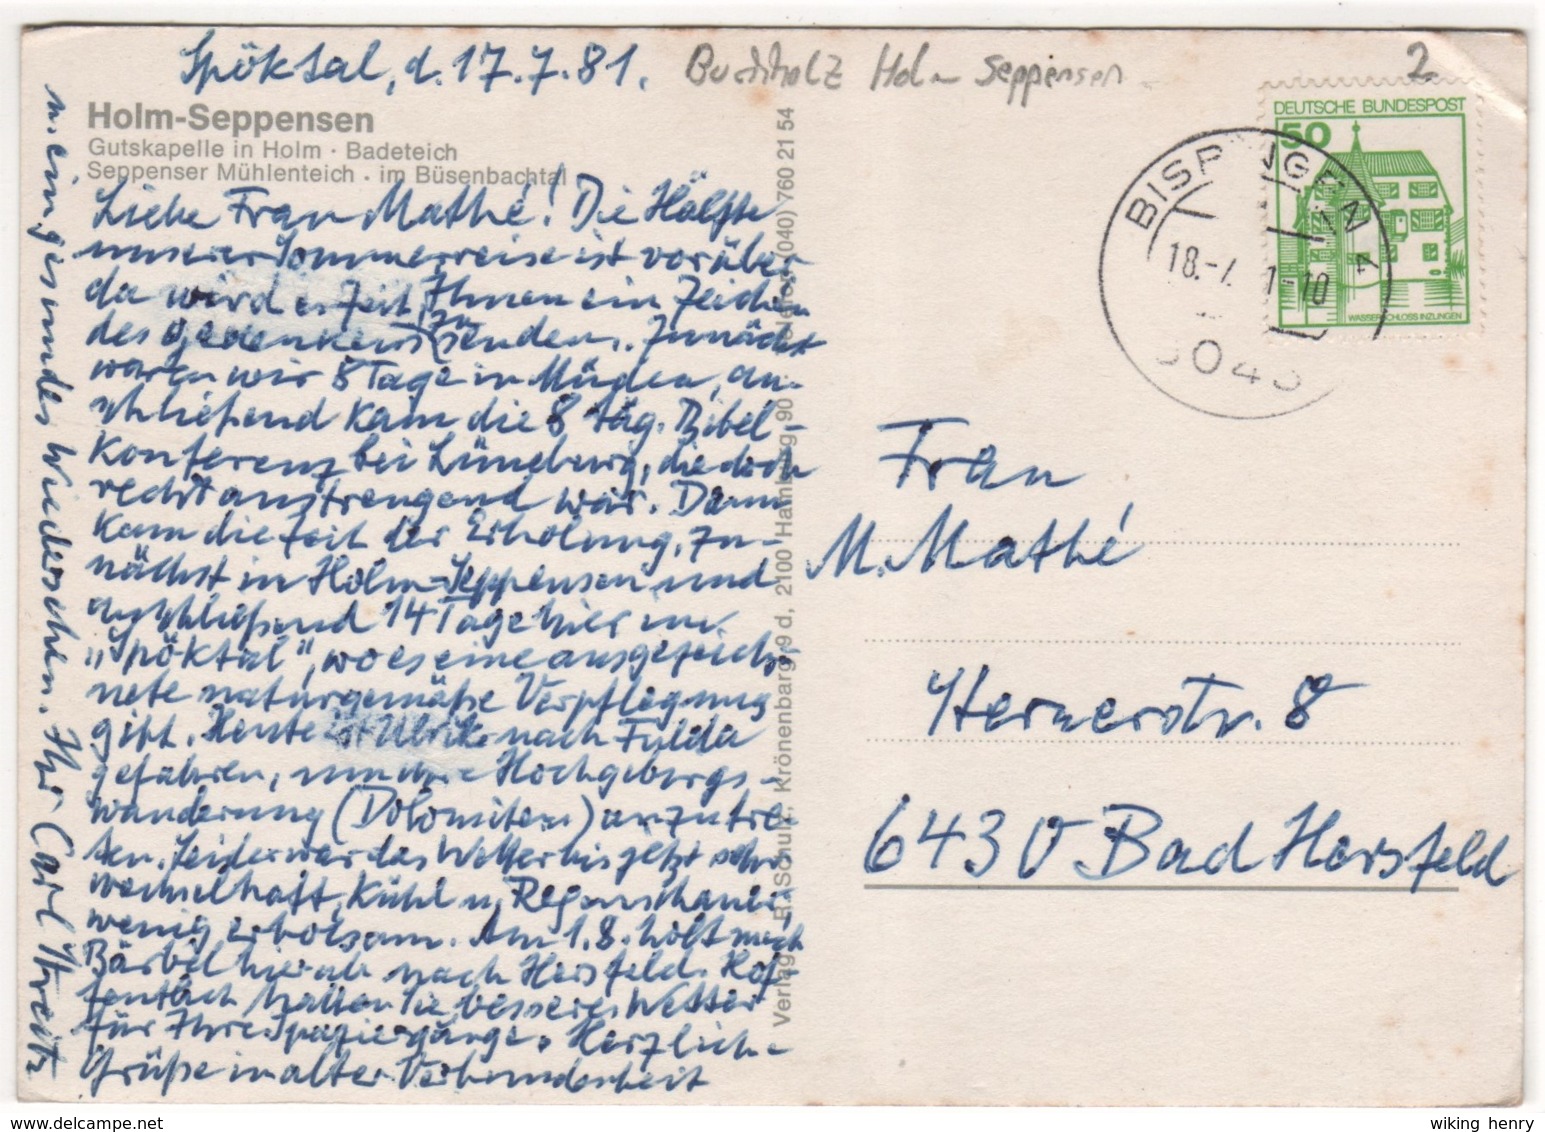 Spöktal, d. 17.7.81.
Buchholz Holm Seppensen
2
Holm-Seppensen
Gutskapelle in Holm · Badeteich
Seppenser Mühlenteich · im Büsenbachtal
Liebe Frau Mathé! Die Hälfte
unserer Sommerreise ist vorüber
da wird es Zeit, Ihnen ein Zeichen
des Gedenkens zu senden. Zunächst
waren wir 8 Tage in Müden, an-
schließend kam die 8 täg. Bibel-
Konferenz bei Lüneburg, die doch
recht anstrengend war. Dann
kam die Zeit der Erholung, zu-
nächst in Holm-Seppensen und
anschließend 14 Tage hier im
„Spöktal", wo es eine ausgezeich-
nete naturgemäße Verpflegung
gibt. Heute ist Ulrike nach Fulda
gefahren, um ihre Hochgebirgs-
wanderung (Dolomiten) anzutre-
ten. Leider war das Wetter bis jetzt sehr
wechselhaft, kühl u. Regenschauer,
wenig erholsam. Am 1.8. holt mich
Bärbel hier ab nach Hersfeld. Hof-
fentlich hatten Sie besseres Wetter
für Ihre Spaziergänge. Herzliche
Grüße in alter Verbundenheit
u. ein gesundes Wiedersehen. Ihr Carl Streitz
Verlag Schutz, Krönenbarg 9 d, 2100 Hamburg 90 · Telefon (040) 760 21 54
DEUTSCHE BUNDESPOST
50
WASSERSCHLOSS INZLINGEN
BISPINGEN 1
18.-7. 1-10
Frau
M. Mathé
Hernerstr. 8
6430 Bad Hersfeld
wiking henry